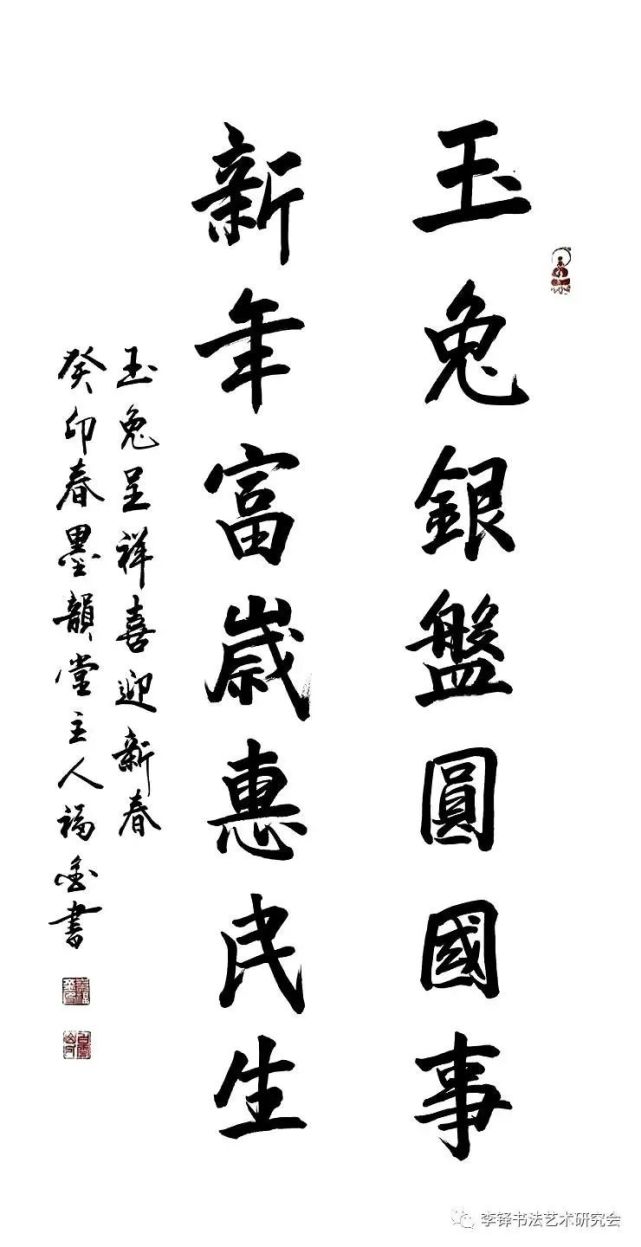 玉兔銀盤圓國事
新年富歲惠民生
玉兔呈祥喜迎新春
癸卯春墨韻堂主人福金書
李铎书法艺术研究会